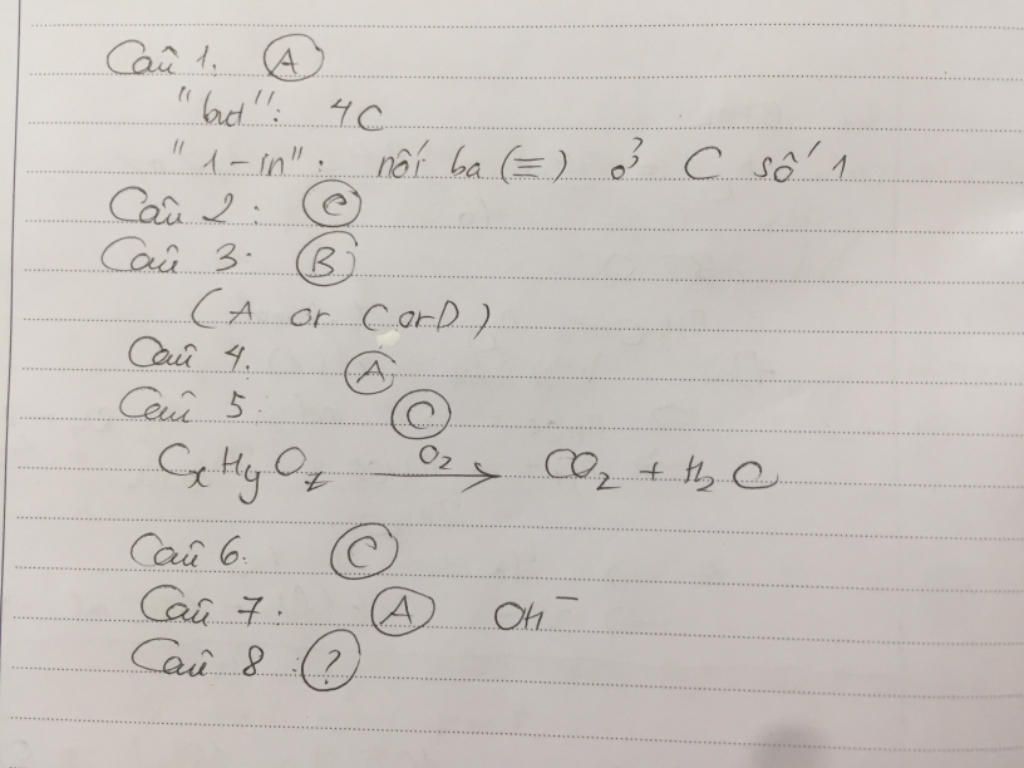 Câu 1. A
"but": 4C
"1-in": nối ba (≡) ở C số 1
Câu 2: C
Câu 3. B
(A or C or D)
Câu 4. A
Câu 5. C
CxHyOz —O2→ CO2 + H2O
Câu 6. C
Câu 7: A OH⁻
Câu 8: ?